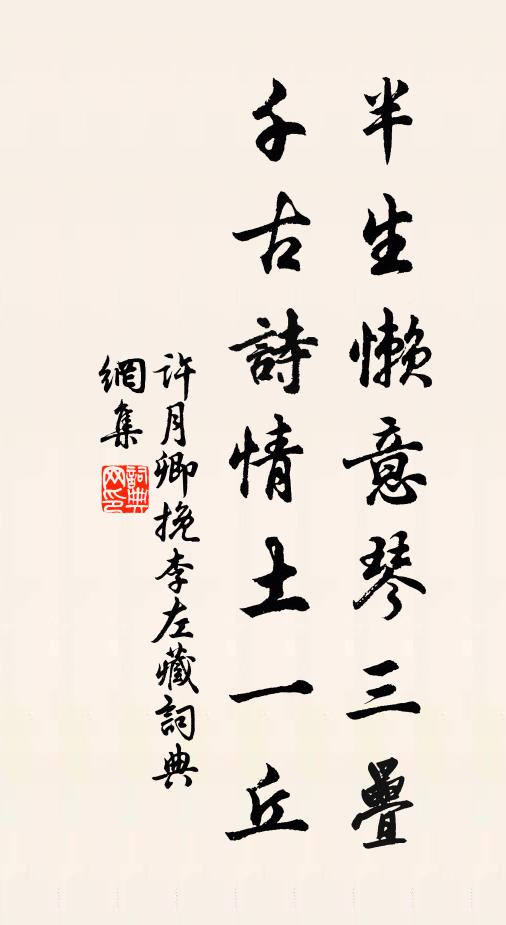 半生懶意琴三疊
千古詩情土一丘
許月卿挽李左藏詞典
網集
詞典
网印